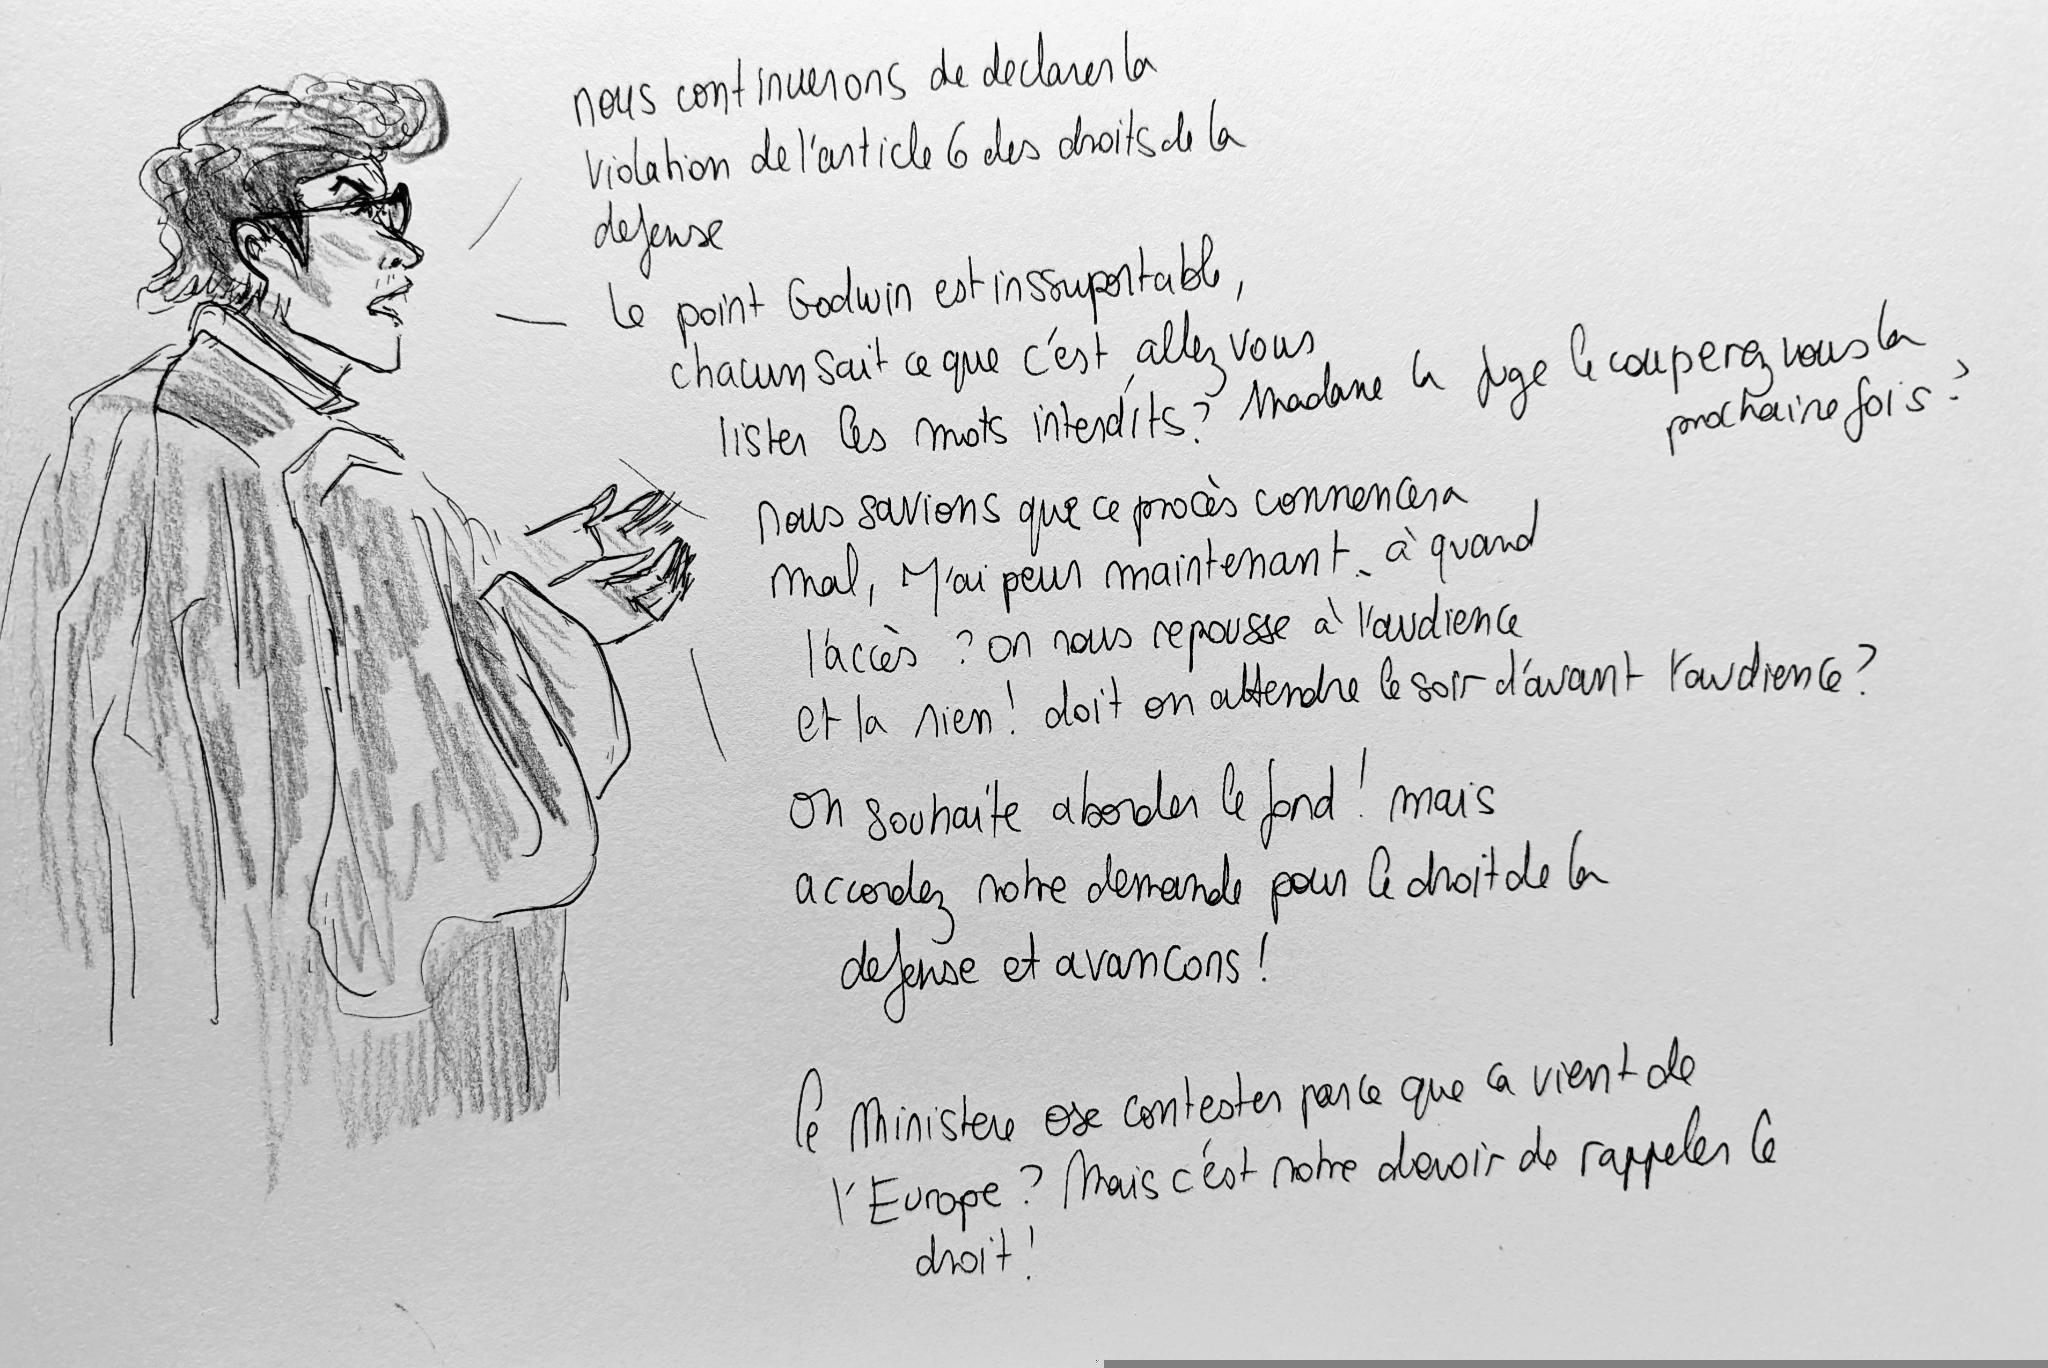 nous continuerons de declarer la
violation de l'article 6 des droits de la
defense
le point Godwin est inssuportable,
chacun sait ce que c'est, allez vous
lister les mots interdits? Madame la juge le couperez vous la
prochaine fois?
nous savions que ce procès commencera
mal, M'ai peur maintenant. à quand
l'accès? on nous repousse à l'audience
et la rien! doit on attendre le soir d'avant l'audience?
on souhaite aborder le fond! mais
accordez notre demande pour le droit de la
defense et avancons!
le Ministere ose contester parce que ca vient de
l'Europe? Mais c'est notre devoir de rappeler le
droit!